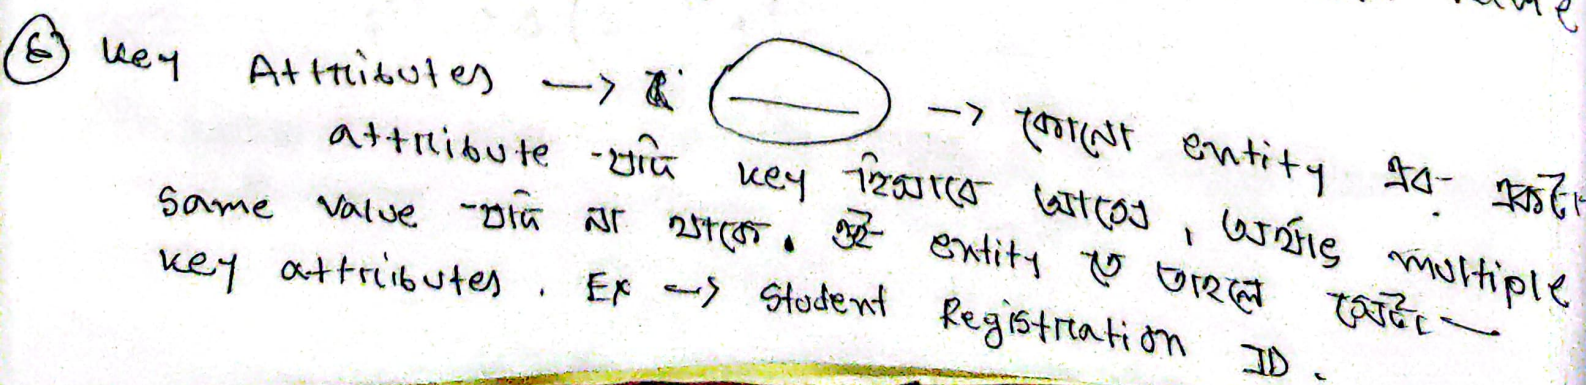 ⑥ Key Attributes -> -> কোনো entity এর একটা
attribute যদি key হিসাবে আসে, অর্থাৎ multiple
same value যদি না থাকে. ঐ entity তে তাহলে সেটা
key attributes. Ex -> Student Registration ID.